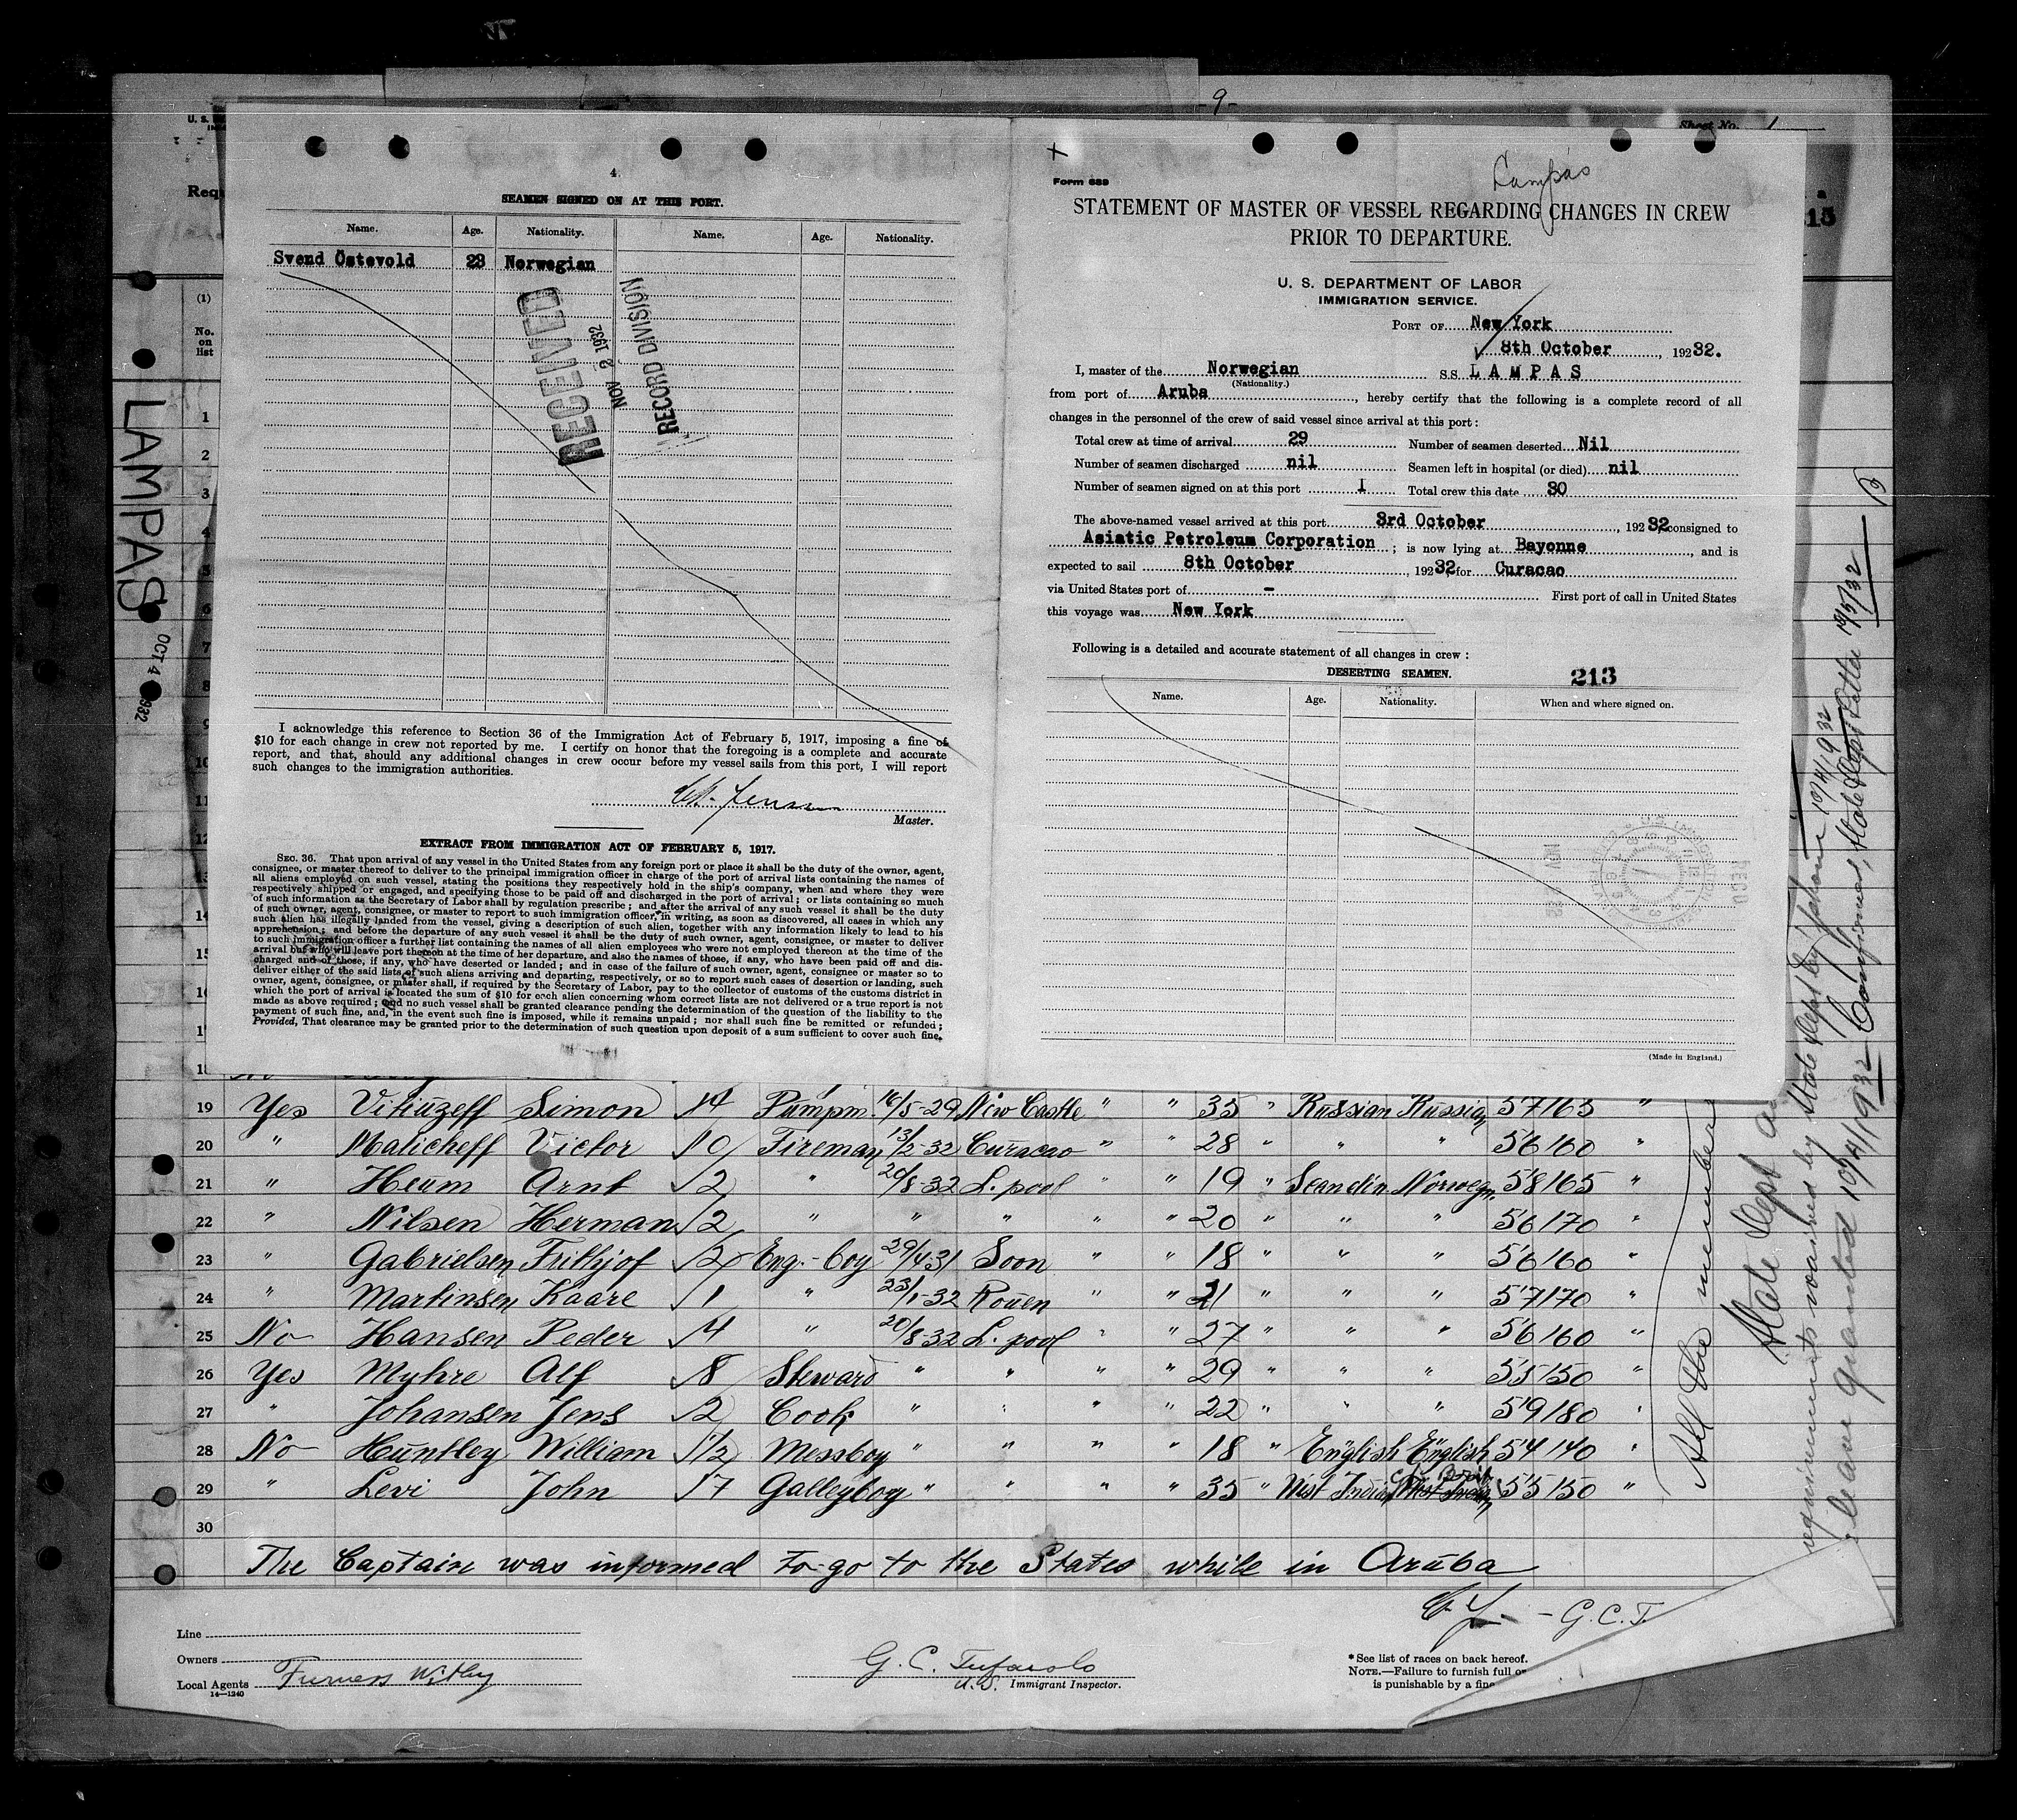 -9-
U. S.
Sheet No. 1
Requ
15
(1)
No.
on
list
LAMPAS
OCT 4 1932
4
SEAMEN SIGNED ON AT THIS PORT.
Name. Age. Nationality. Name. Age. Nationality.
Svend Östevold 23 Norwegian
RECEIVED
NOV 2 1932
RECORD DIVISION
I acknowledge this reference to Section 36 of the Immigration Act of February 5, 1917, imposing a fine of
$10 for each change in crew not reported by me. I certify on honor that the foregoing is a complete and accurate
report, and that, should any additional changes in crew occur before my vessel sails from this port, I will report
such changes to the immigration authorities.
Master.
EXTRACT FROM IMMIGRATION ACT OF FEBRUARY 5, 1917.
SEC. 36. That upon arrival of any vessel in the United States from any foreign port or place it shall be the duty of the owner, agent,
consignee, or master thereof to deliver to the principal immigration officer in charge of the port of arrival lists containing the names of
all aliens employed on such vessel, stating the positions they respectively hold in the ship's company, when and where they were
respectively shipped or engaged, and specifying those to be paid off and discharged in the port of arrival; or lists containing so much
of such information as the Secretary of Labor shall by regulation prescribe; and after the arrival of any such vessel it shall be the duty
of such owner, agent, consignee, or master to report to such immigration officer, in writing, as soon as discovered, all cases in which any
such alien has illegally landed from the vessel, giving a description of such alien, together with any information likely to lead to his
apprehension; and before the departure of any such vessel it shall be the duty of such owner, agent, consignee, or master to deliver
to such immigration officer a further list containing the names of all alien employees who were not employed thereon at the time of the
arrival but who will leave port thereon at the time of her departure, and also the names of those, if any, who have been paid off and dis-
charged and of those, if any, who have deserted or landed; and in case of the failure of such owner, agent, consignee or master so to
deliver either of the said lists of such aliens arriving and departing, respectively, or so to report such cases of desertion or landing, such
owner, agent, consignee, or master shall, if required by the Secretary of Labor, pay to the collector of customs of the customs district in
which the port of arrival is located the sum of $10 for each alien concerning whom correct lists are not delivered or a true report is not
made as above required; and no such vessel shall be granted clearance pending the determination of the question of the liability to the
payment of such fine, and, in the event such fine is imposed, while it remains unpaid; nor shall such fine be remitted or refunded;
Provided, That clearance may be granted prior to the determination of such question upon deposit of a sum sufficient to cover such fine.
Form 689
Lampas
STATEMENT OF MASTER OF VESSEL REGARDING CHANGES IN CREW
PRIOR TO DEPARTURE.
U. S. DEPARTMENT OF LABOR
IMMIGRATION SERVICE.
PORT OF New York
8th October, 192 32.
I, master of the Norwegian S.S. LAMPAS
(Nationality.)
from port of Aruba, hereby certify that the following is a complete record of all
changes in the personnel of the crew of said vessel since arrival at this port:
Total crew at time of arrival 29 Number of seamen deserted Nil
Number of seamen discharged nil Seamen left in hospital (or died) nil
Number of seamen signed on at this port I Total crew this date 30
The above-named vessel arrived at this port 3rd October, 192 32 consigned to
Asiatic Petroleum Corporation; is now lying at Bayonne, and is
expected to sail 8th October, 192 32 for Curacao
via United States port of - First port of call in United States
this voyage was New York
Following is a detailed and accurate statement of all changes in crew:
DESERTING SEAMEN. 213
Name. Age. Nationality. When and where signed on.
(Made in England.)
19 Yes Vitiuzeff Simon 14 Pumpm. 16/5-29 New Castle " " 35 " Russian Russian 5'7 165 "
20 " Malicheff Victor 10 Fireman 13/2-32 Curacao " " 28 " " " 5'6 160 "
21 " Heum Arnt 2 " 20/8-32 L. pool " " 19 " Scandin. Norwegn. 5'8 165 "
22 " Nilsen Herman 2 " " " " " 20 " " " 5'6 170 "
23 " Gabrielsen Frithjof 2 Eng.-boy 29/4 31 Soon " " 18 " " " 5'6 160 "
24 " Martinsen Kaare 1 " 23/1-32 Rouen " " 21 " " " 5'7 170 "
25 No Hansen Peder 4 " 20/8-32 L. pool " " 27 " " " 5'6 160 "
26 Yes Myhre Alf 8 Steward " " " " 29 " " " 5'5 150 "
27 " Johansen Jens 2 Cook " " " " 22 " " " 5'9 180 "
28 No Huntley William 1 1/2 Messboy " " " " 18 " English English 5'4 140 "
29 " Levi John 17 Galleyboy " " " " 35 " West Indian 5'5 150 "
30
The Captain was informed to go to the States while in Aruba
- G. C. T.
Line
Owners
Local Agents Furness Withy
14—1240
G. C. Tufarolo
U.S. Immigrant Inspector.
* See list of races on back hereof.
NOTE.—Failure to furnish full or
is punishable by a fine
All the members
State Dept
requirements waived by State Dept by phone 10/4/1932
leave granted 10/4/1932 Confirmed, State Dept letter 10/5/32